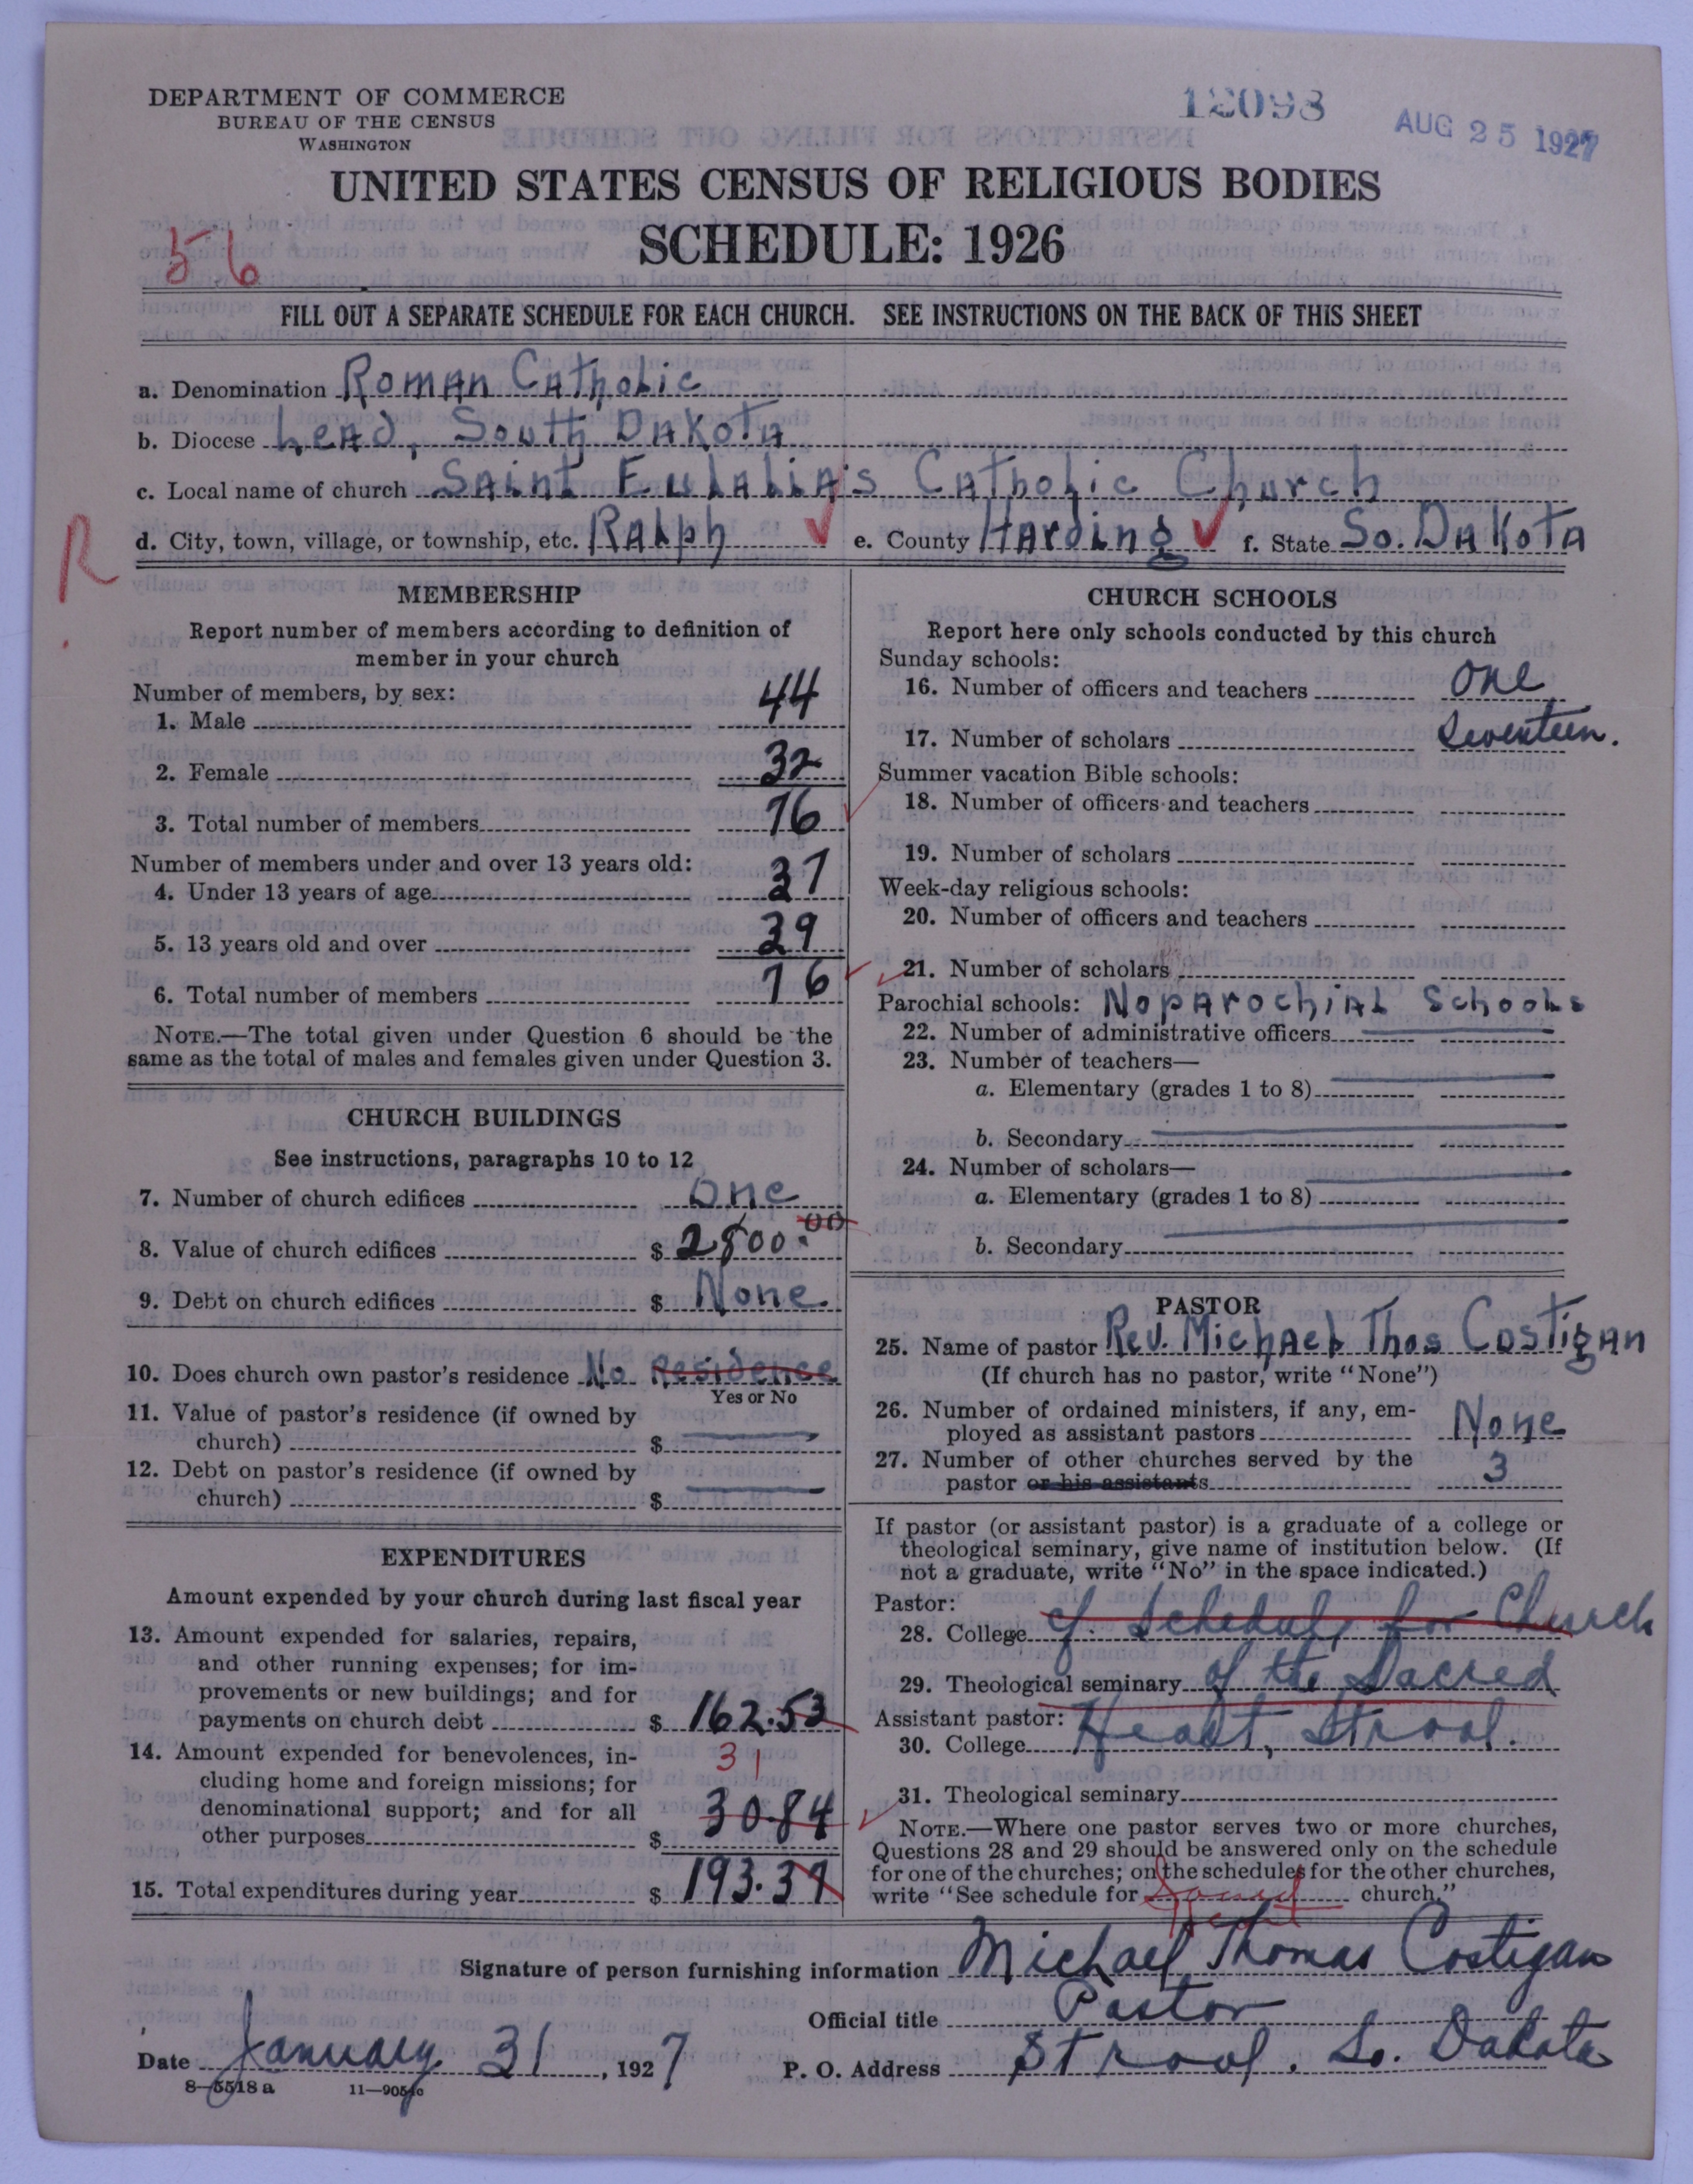 DEPARTMENT OF COMMERCE
BUREAU OF THE CENSUS
WASHINGTON
12098
AUG 25 1927
UNITED STATES CENSUS OF RELIGIOUS BODIES
SCHEDULE: 1926
56
FILL OUT A SEPARATE SCHEDULE FOR EACH CHURCH. SEE INSTRUCTIONS ON THE BACK OF THIS SHEET
a. Denomination Roman Catholic
b. Diocese Lead, South Dakota
c. Local name of church Saint Eulalia's Catholic Church
d. City, town, village, or township, etc. Ralph e. County Harding f. State So. Dakota
R
MEMBERSHIP
Report number of members according to definition of
member in your church
Number of members, by sex:
1. Male 44
2. Female 32
3. Total number of members 76
Number of members under and over 13 years old:
4. Under 13 years of age 37
5. 13 years old and over 39
6. Total number of members 76
NOTE.—The total given under Question 6 should be the
same as the total of males and females given under Question 3.
CHURCH BUILDINGS
See instructions, paragraphs 10 to 12
7. Number of church edifices One
8. Value of church edifices $ 2800.00
9. Debt on church edifices $ None
10. Does church own pastor's residence No Residence
Yes or No
11. Value of pastor's residence (if owned by
church) $
12. Debt on pastor's residence (if owned by
church) $
EXPENDITURES
Amount expended by your church during last fiscal year
13. Amount expended for salaries, repairs,
and other running expenses; for im-
provements or new buildings; and for
payments on church debt $ 162.53
14. Amount expended for benevolences, in-
31
cluding home and foreign missions; for
denominational support; and for all
other purposes $ 30.84
15. Total expenditures during year $ 193.37
CHURCH SCHOOLS
Report here only schools conducted by this church
Sunday schools:
16. Number of officers and teachers One
17. Number of scholars Seventeen.
Summer vacation Bible schools:
18. Number of officers and teachers
19. Number of scholars
Week-day religious schools:
20. Number of officers and teachers
21. Number of scholars
Parochial schools: No parochial Schools
22. Number of administrative officers
23. Number of teachers—
a. Elementary (grades 1 to 8)
b. Secondary
24. Number of scholars—
a. Elementary (grades 1 to 8)
b. Secondary
PASTOR
25. Name of pastor Rev. Michael Thos Costigan
(If church has no pastor, write "None")
26. Number of ordained ministers, if any, em-
ployed as assistant pastors None
27. Number of other churches served by the
pastor or his assistants 3
If pastor (or assistant pastor) is a graduate of a college or
theological seminary, give name of institution below. (If
not a graduate, write "No" in the space indicated.)
Pastor:
28. College cf Schedule for Church
29. Theological seminary of the Sacred
Assistant pastor: Heart, Strool.
30. College
31. Theological seminary
NOTE.—Where one pastor serves two or more churches,
Questions 28 and 29 should be answered only on the schedule
for one of the churches; on the schedules for the other churches,
write "See schedule for Sacred Heart church."
Signature of person furnishing information Michael Thomas Costigan
Official title Pastor
Date January 31, 1927 P. O. Address Strool. So. Dakota
8—5518 a 11—9054c